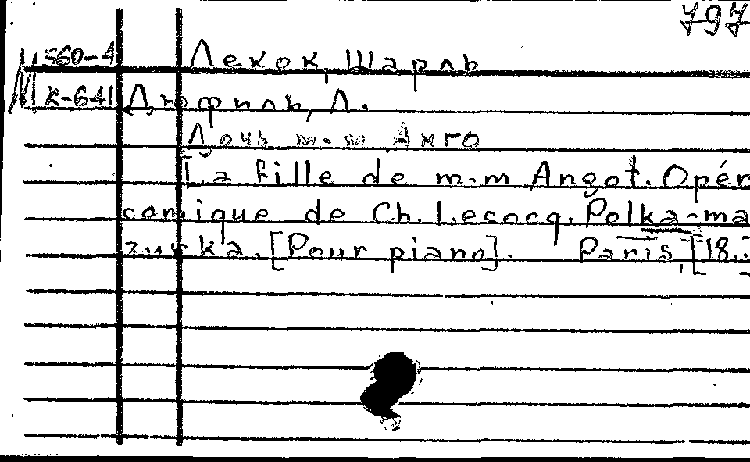 797
М 560-4 Лекок, Шарль
К-641 Дюфиль, Л.
Дочь м-м Анго
La fille de m-m Angot. Opér
comique de Ch. Lecocq. Polka-ma
zurka. [Pour piano]. Paris, [18..